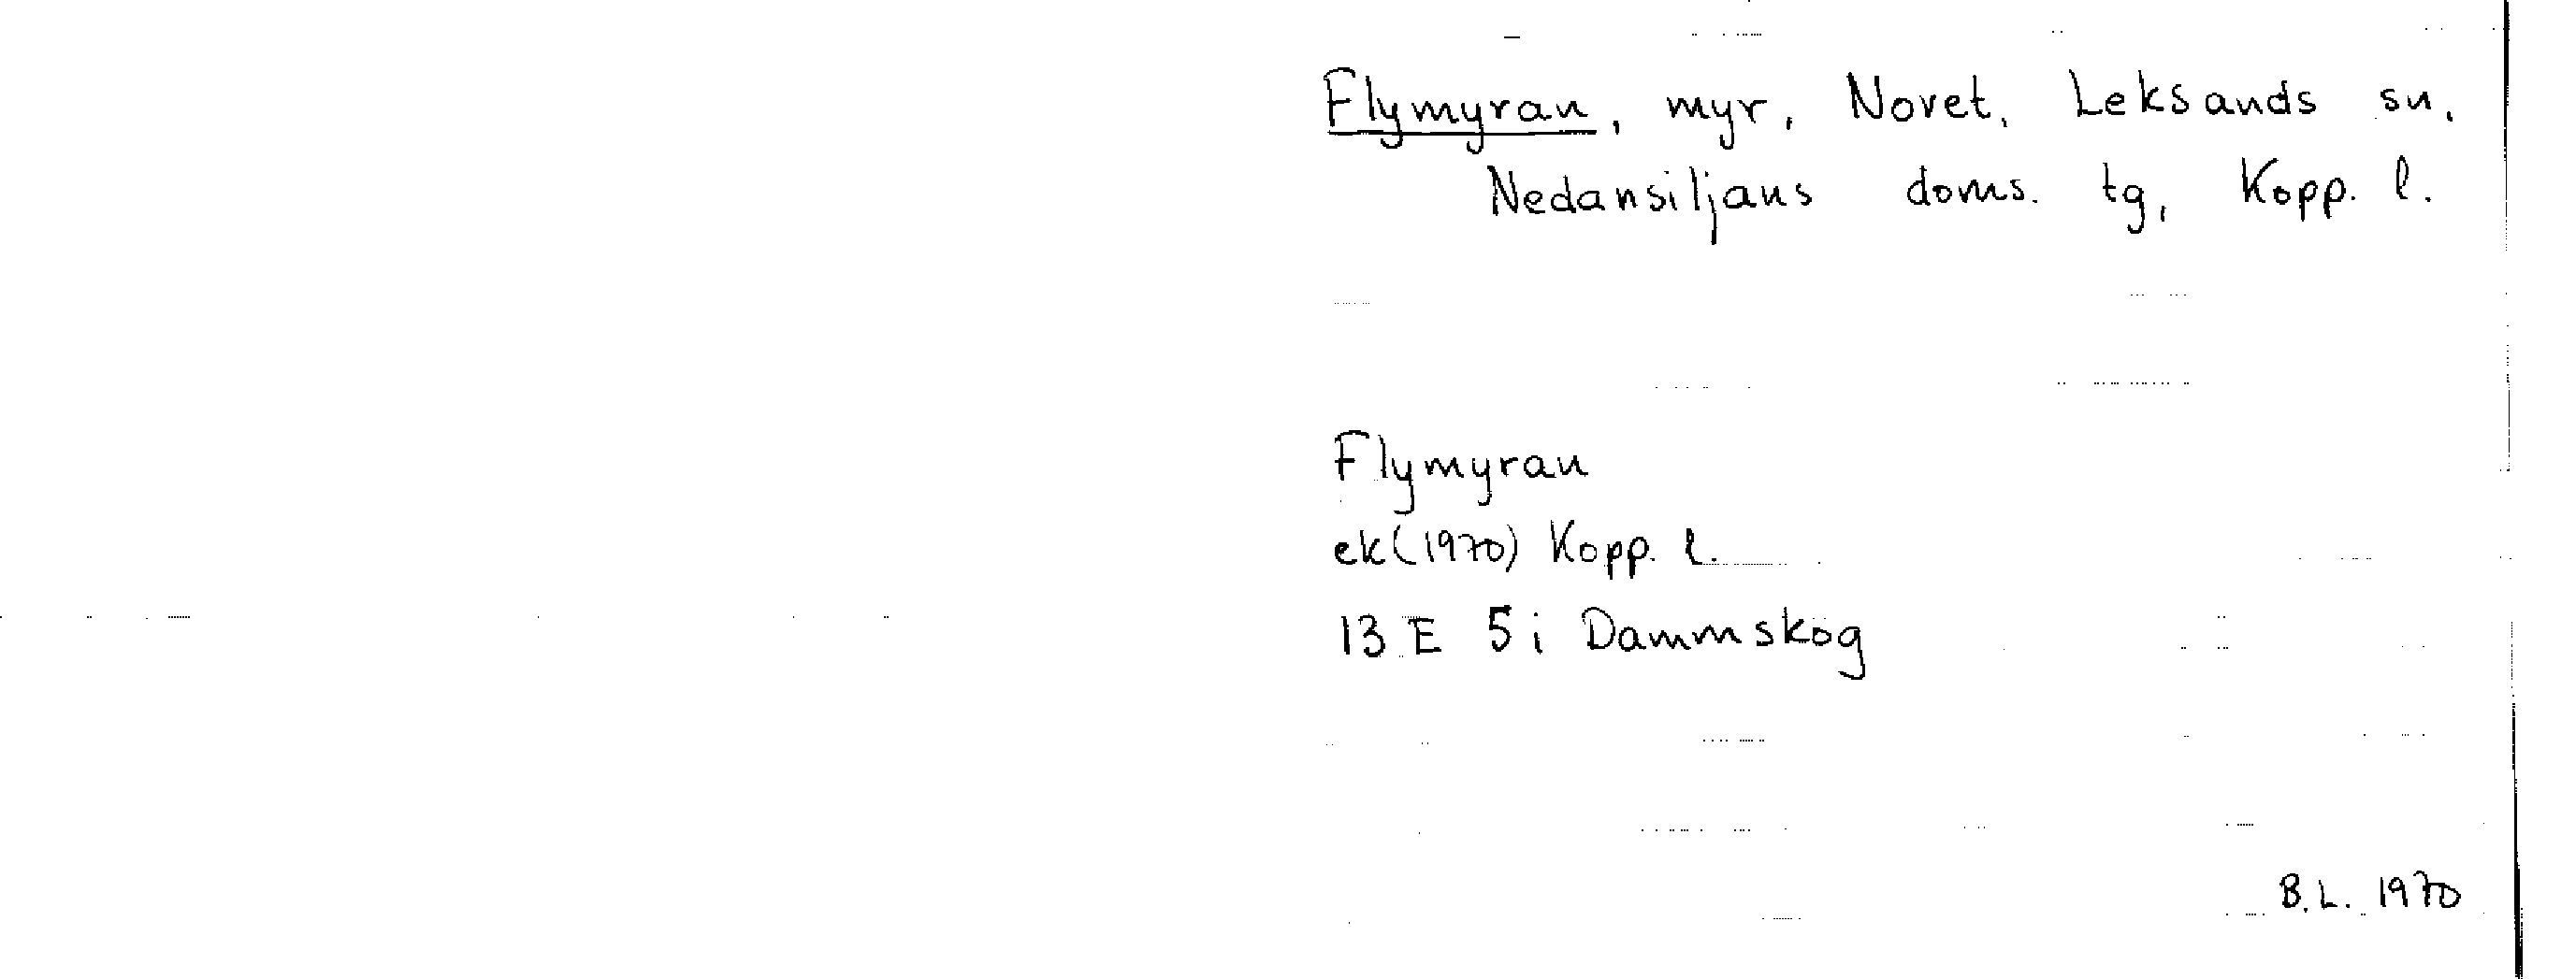 Flymyran, myr, Novet, Leksands sn,
Nedansiljans doms. tg, Kopp. l.
Flymyran
ek (1970) Kopp. l.
13 E 5i Dammskog
B.L. 1970